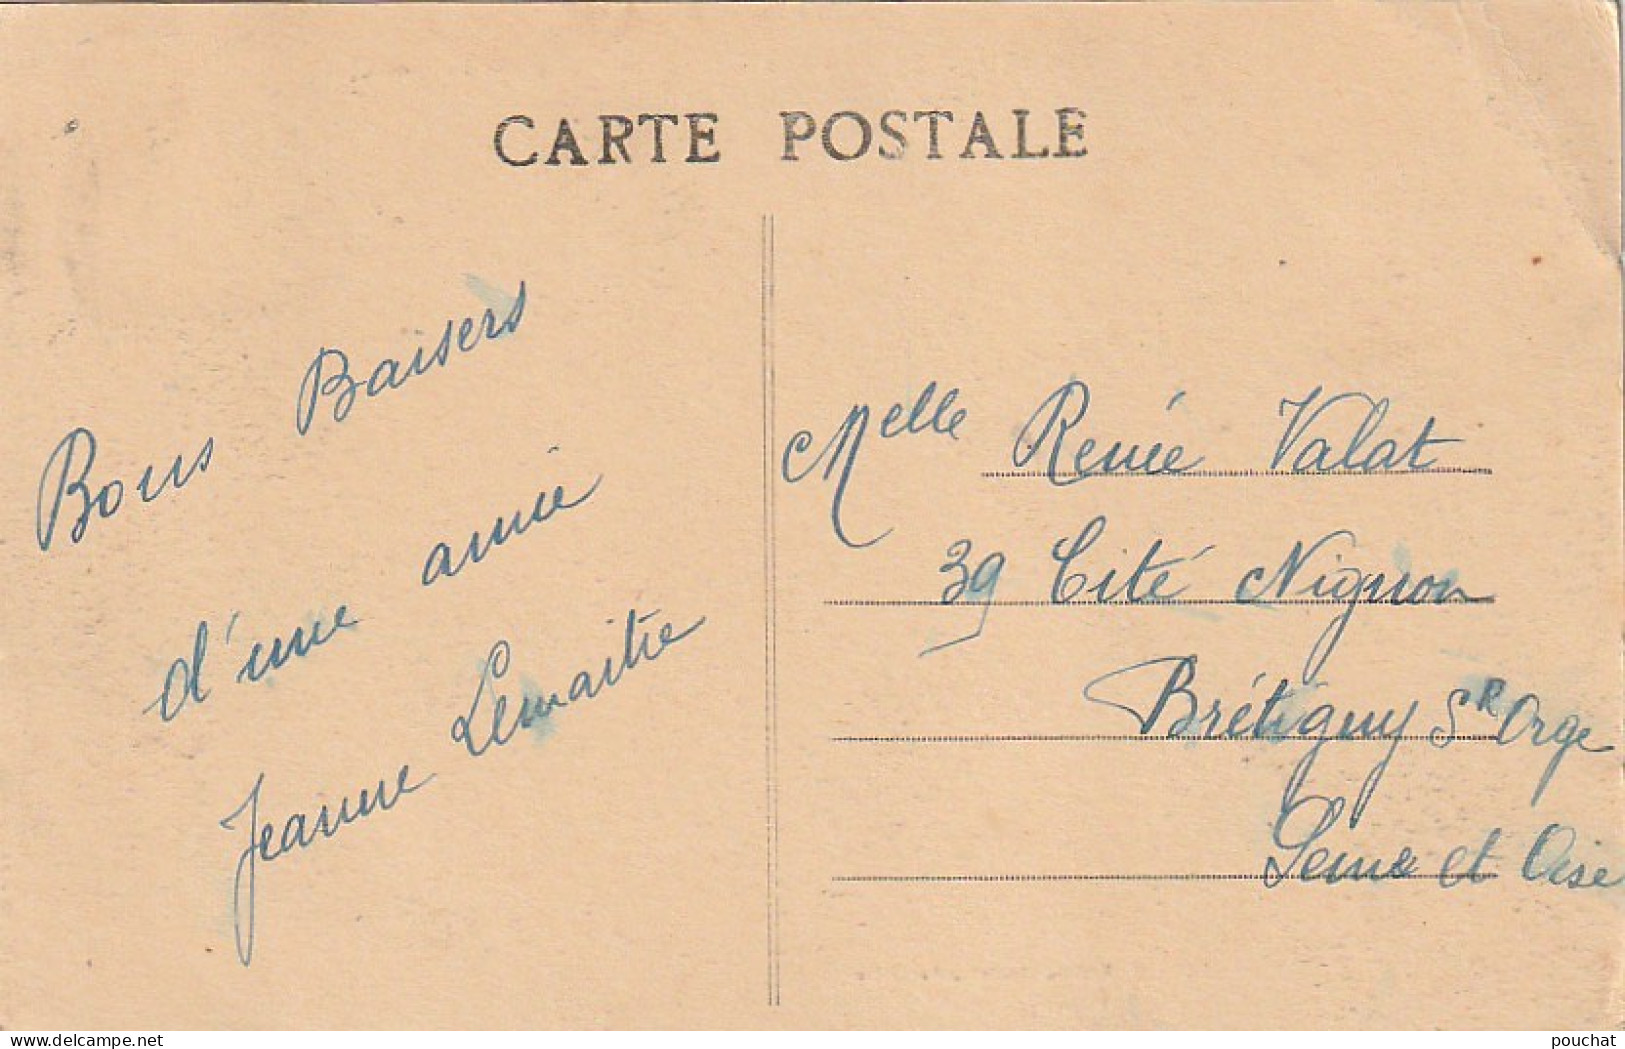 CARTE POSTALE
Bons Baisers
d'une amie
Jeanne Lemaitre
Melle Renée Valat
39 Cité Nignon
Brétigny SR Orge
Seine et Oise
delcampe.net
pouchat